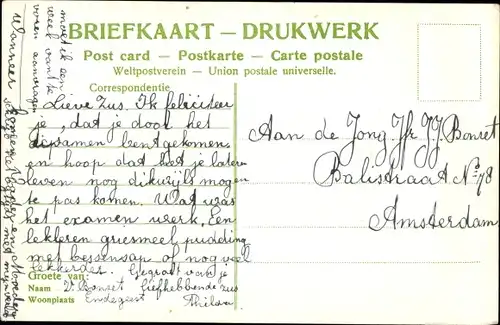 BRIEFKAART — DRUKWERK
Post card — Postkarte — Carte postale
Weltpostverein — Union postale universelle.
Correspondentie
Lieve Zus. Ik feliciteer
je, dat je door het
examen bent gekomen
en hoop dat het je later
leven nog dikwijls mogen
te pas komen. Wat was
het examen werk. Een
lekkeren griesmeel pudding
met bessensap of nog veel
lekkerder. Gegroet van je
Groete van: liefhebbende zus
Naam D. Bonset
Woonplaats Endegeest
Aan de Jong. Jfr. JJ Bonset
Balistraat No 78
Amsterdam
moet ik een
week van te
voren aanvragen
Wanneer